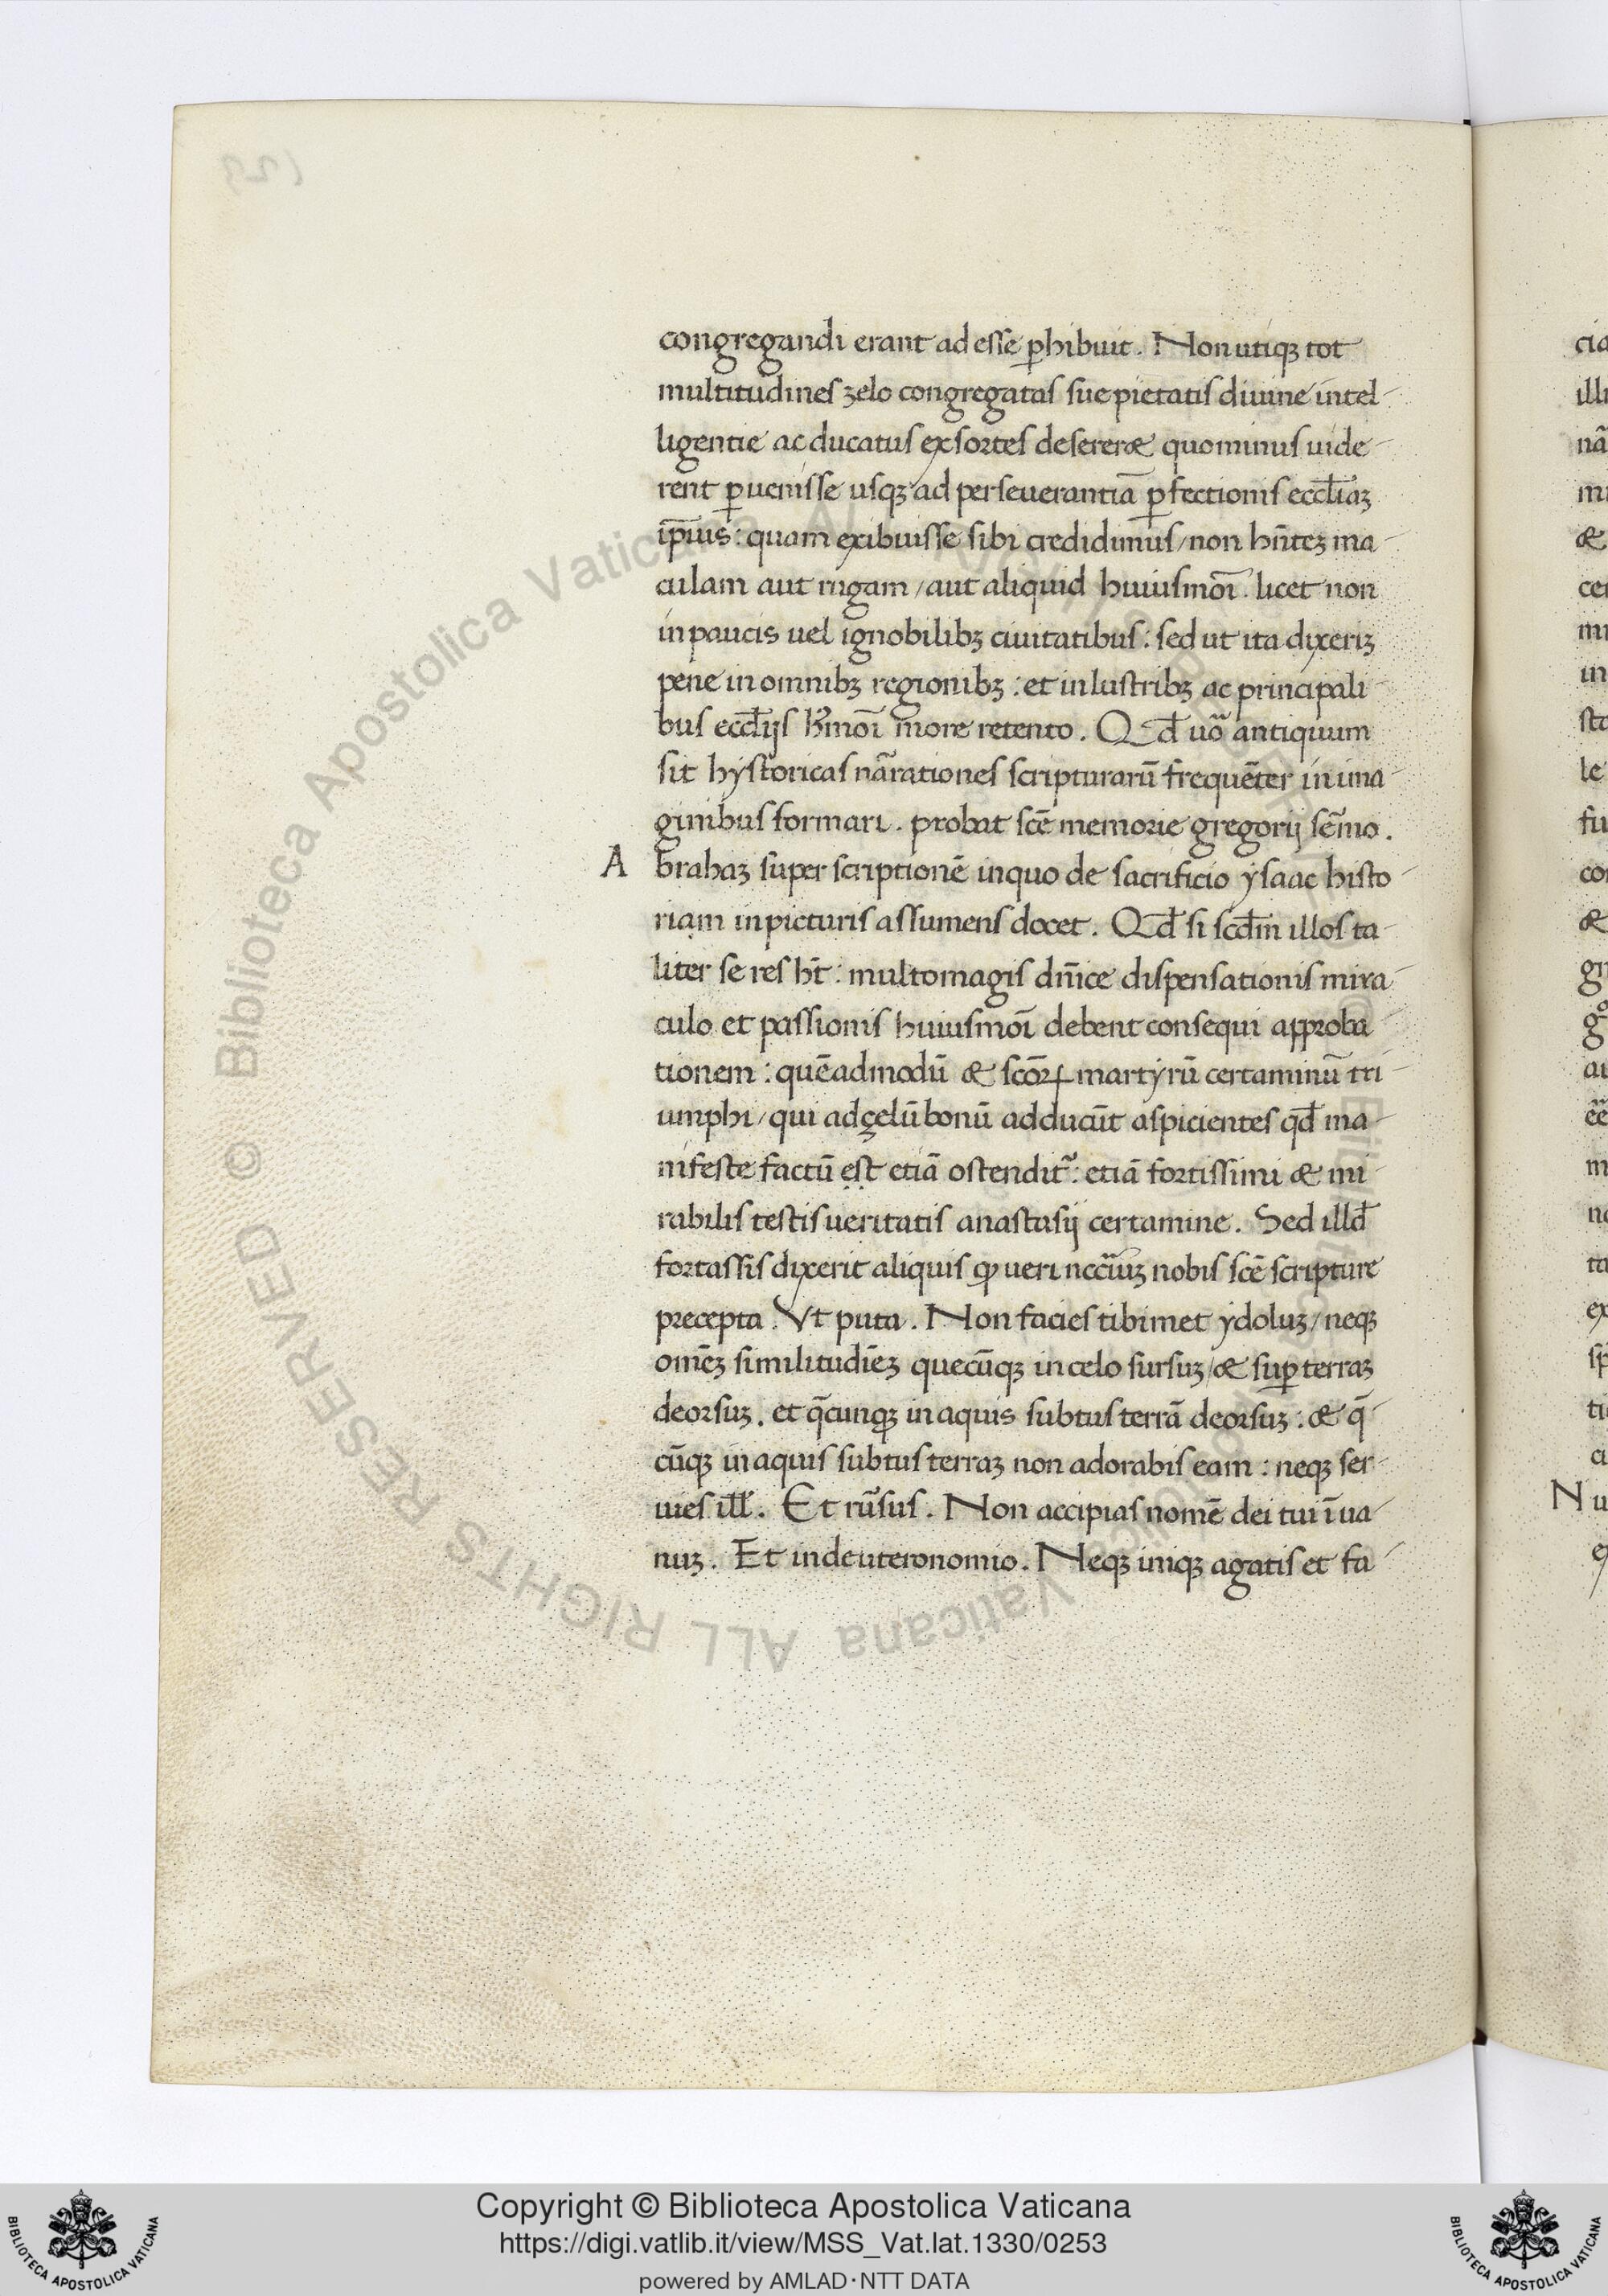 congregandi erant ad esse ꝑhibuit. Non utiqꝫ tot
multitudines zelo congregatas sue pietatis diuine intel-
ligentie ac ducatus exsortes desereræ quominus uide-
rent ꝑuenisse usqꝫ ad perseuerantiā ꝑfectionis eccl̄iaꝫ
ip̄ius: quam exibuisse sibi credidimus/non hn̄teꝫ ma-
culam aut rugam/aut aliquid huiusmoī. licet non
in paucis uel ignobilibꝫ ciuitatibus: sed ut ita dixeriꝫ
pene in omnibꝫ regionibꝫ: et inlustribꝫ ac principali-
bus eccl̄ijs hꝰmoī more retento. Qđ uō antiquum
sit hystoricas nārationes scripturarū frequēter in ima-
ginibus formari. probat scē memorie gregorij sēmo.
A brahaꝫ super scriptionē in quo de sacrificio ysaac histo-
riam in picturis assumens docet. Qđ si scđm illos ta-
liter se res ht̄: multo magis dn̄ice dispensationis mira-
culo et passionis huiusmoī debent consequi approba-
tionem: quēadmodū æ scōꝝ martyrū certaminū tri-
umphi/qui ad çelū bonū adducūt aspicientes qđ ma-
nifeste factū est etiā ostendit᷑: etiā fortissimi æ mi-
rabilis testis ueritatis anastasij certamine. Sed illđ
fortassis dixerit aliquis ꝙ ueri nccīuꝫ nobis scē scripture
precepta. Vt puta. Non facies tibimet ydoluꝫ/neqꝫ
omēꝫ similitudīeꝫ quecūqꝫ in celo sursuꝫ/æ suꝑ terraꝫ
deorsuꝫ. et q̄cunqꝫ in aquis subtus terrā deorsuꝫ: æ q̄-
cūqꝫ in aquis subtus terraꝫ non adorabis eam: neqꝫ ser-
uies ill̄. Et rūsus. Non accipias nomē dei tui ī ua-
nuꝫ. Et in deuteronomio. Neqꝫ iniqꝫ agatis et fa-
cia
ill
nā
mi
æ
cer
in
sta
le
fu
con
æ
gn
au
m
ta
ex
ti
N u
Copyright © Biblioteca Apostolica Vaticana
https://digi.vatlib.it/view/MSS_Vat.lat.1330/0253
powered by AMLAD·NTT DATA
BIBLIOTECA APOSTOLICA VATICANA
BIBLIOTECA APOSTOLICA VATICANA
© Biblioteca Apostolica Vaticana ALL RIGHTS RESERVED